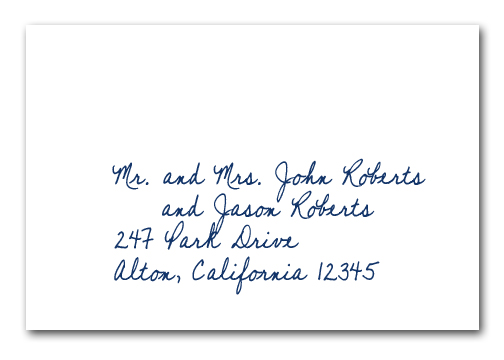 Mr. and Mrs. John Roberts
and Jason Roberts
247 Park Drive
Alton, California 12345